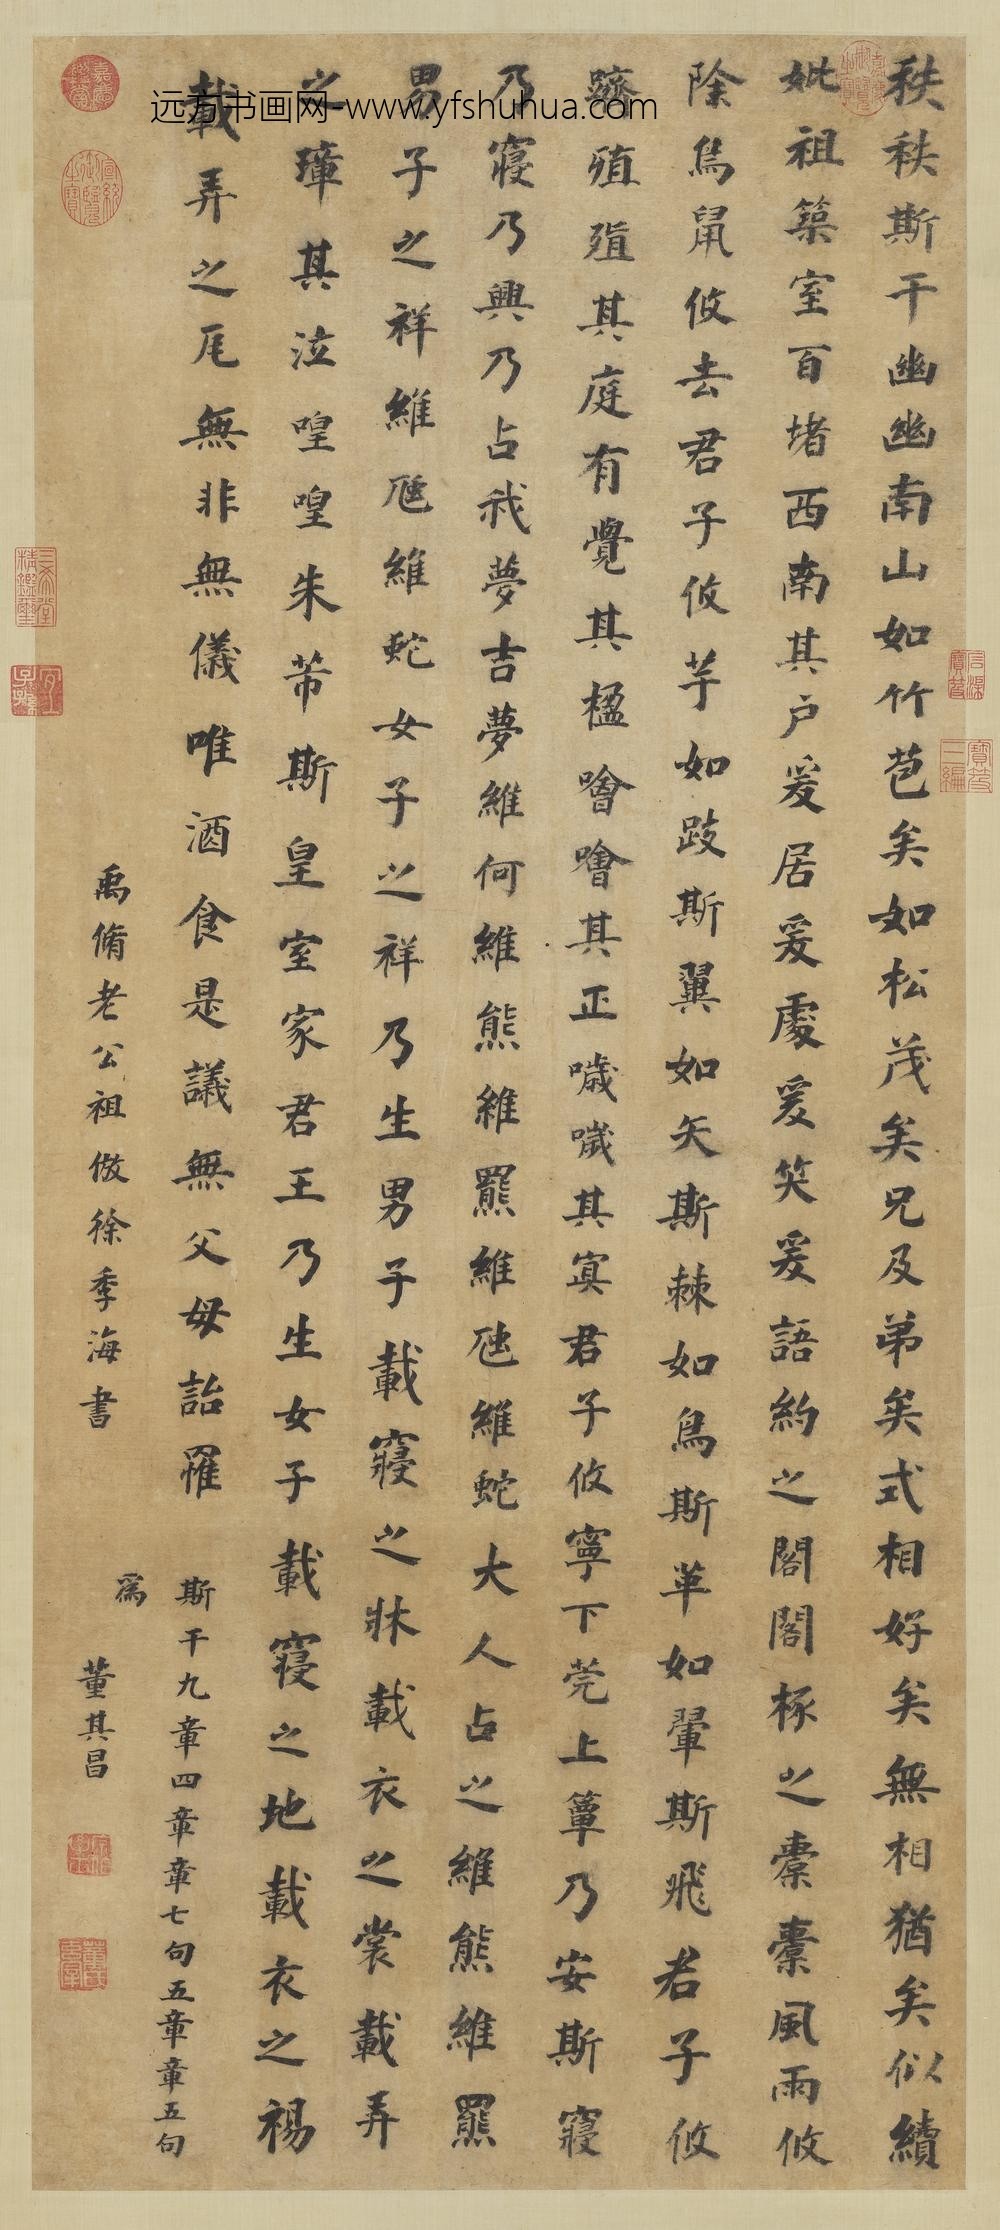 秩秩斯干幽幽南山如竹苞矣如松茂矣兄及弟矣式相好矣無相猶矣似續
妣祖築室百堵西南其户爰居爰處爰笑爰語約之閣閣椓之橐橐風雨攸
除鳥鼠攸去君子攸芋如跂斯翼如矢斯棘如鳥斯革如翬斯飛君子攸
躋殖殖其庭有覺其楹噲噲其正噦噦其寘君子攸寧下莞上簟乃安斯寢
乃寢乃興乃占我夢吉夢維何維熊維羆維虺維蛇大人占之維熊維羆
男子之祥維虺維蛇女子之祥乃生男子載寢之牀載衣之裳載弄
之璋其泣喤喤朱芾斯皇室家君王乃生女子載寢之地載衣之裼
載弄之瓦無非無儀唯酒食是議無父母詒罹
斯干九章四章章七句五章章五句
爲
禹脩老公祖倣徐季海書
董其昌
远方书画网-www.yfshuhua.com